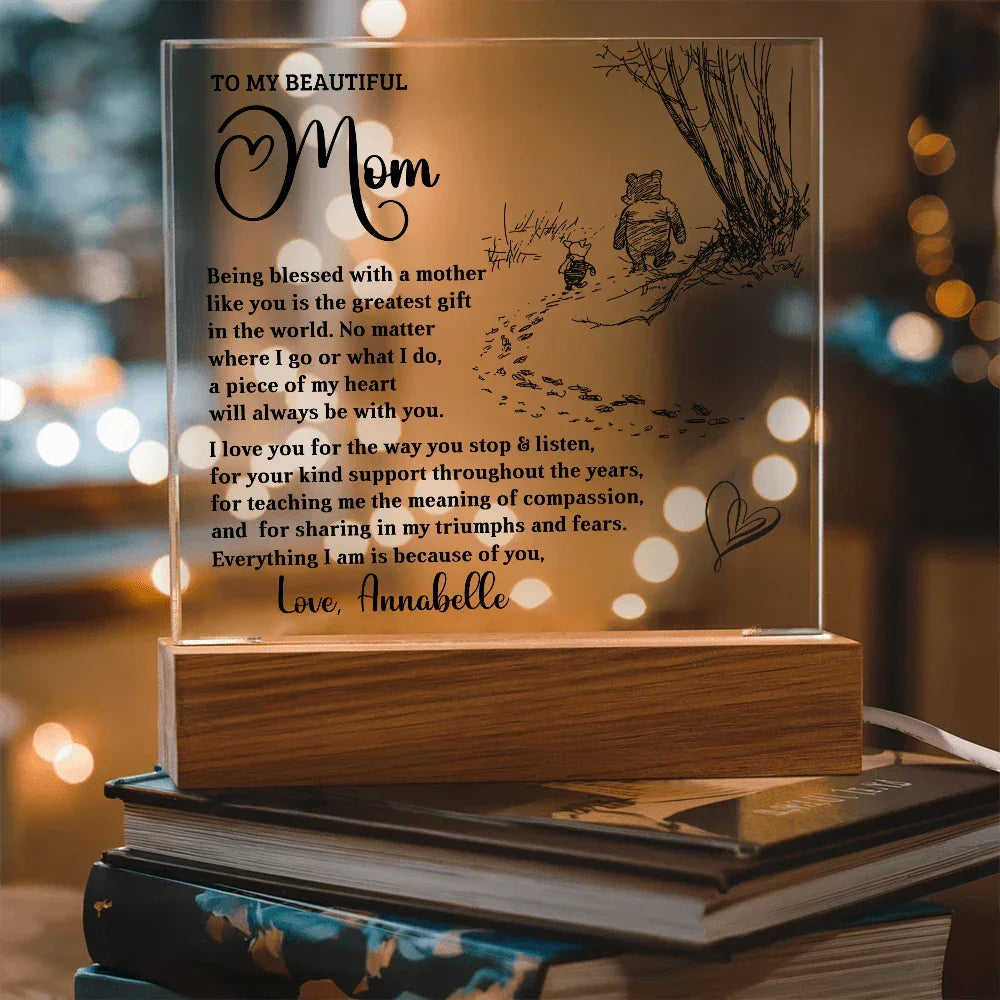 TO MY BEAUTIFUL
Mom
Being blessed with a mother
like you is the greatest gift
in the world. No matter
where I go or what I do,
a piece of my heart
will always be with you.
I love you for the way you stop & listen,
for your kind support throughout the years,
for teaching me the meaning of compassion,
and for sharing in my triumphs and fears.
Everything I am is because of you,
Love, Annabelle